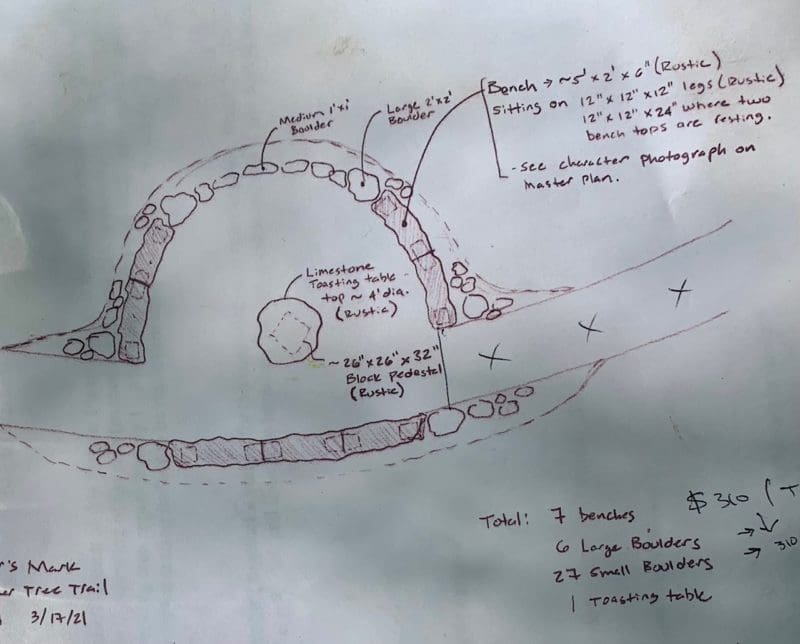 Bench → ~5' x 2' x 6" (Rustic)
Sitting on 12" x 12" x 12" legs (Rustic)
12" x 12" x 24" where two
bench tops are resting.
- See character photograph on
Master Plan.
Large 2'x2'
Boulder
Medium 1'x1'
Boulder
Limestone
Toasting table
top ~ 4' dia.
(Rustic)
~26"x26"x32"
Block Pedestal
(Rustic)
Total: 7 benches
6 Large Boulders →
27 Small Boulders → 310
1 Toasting table
$310 / T
r's Mark
er Tree Trail
3/17/21